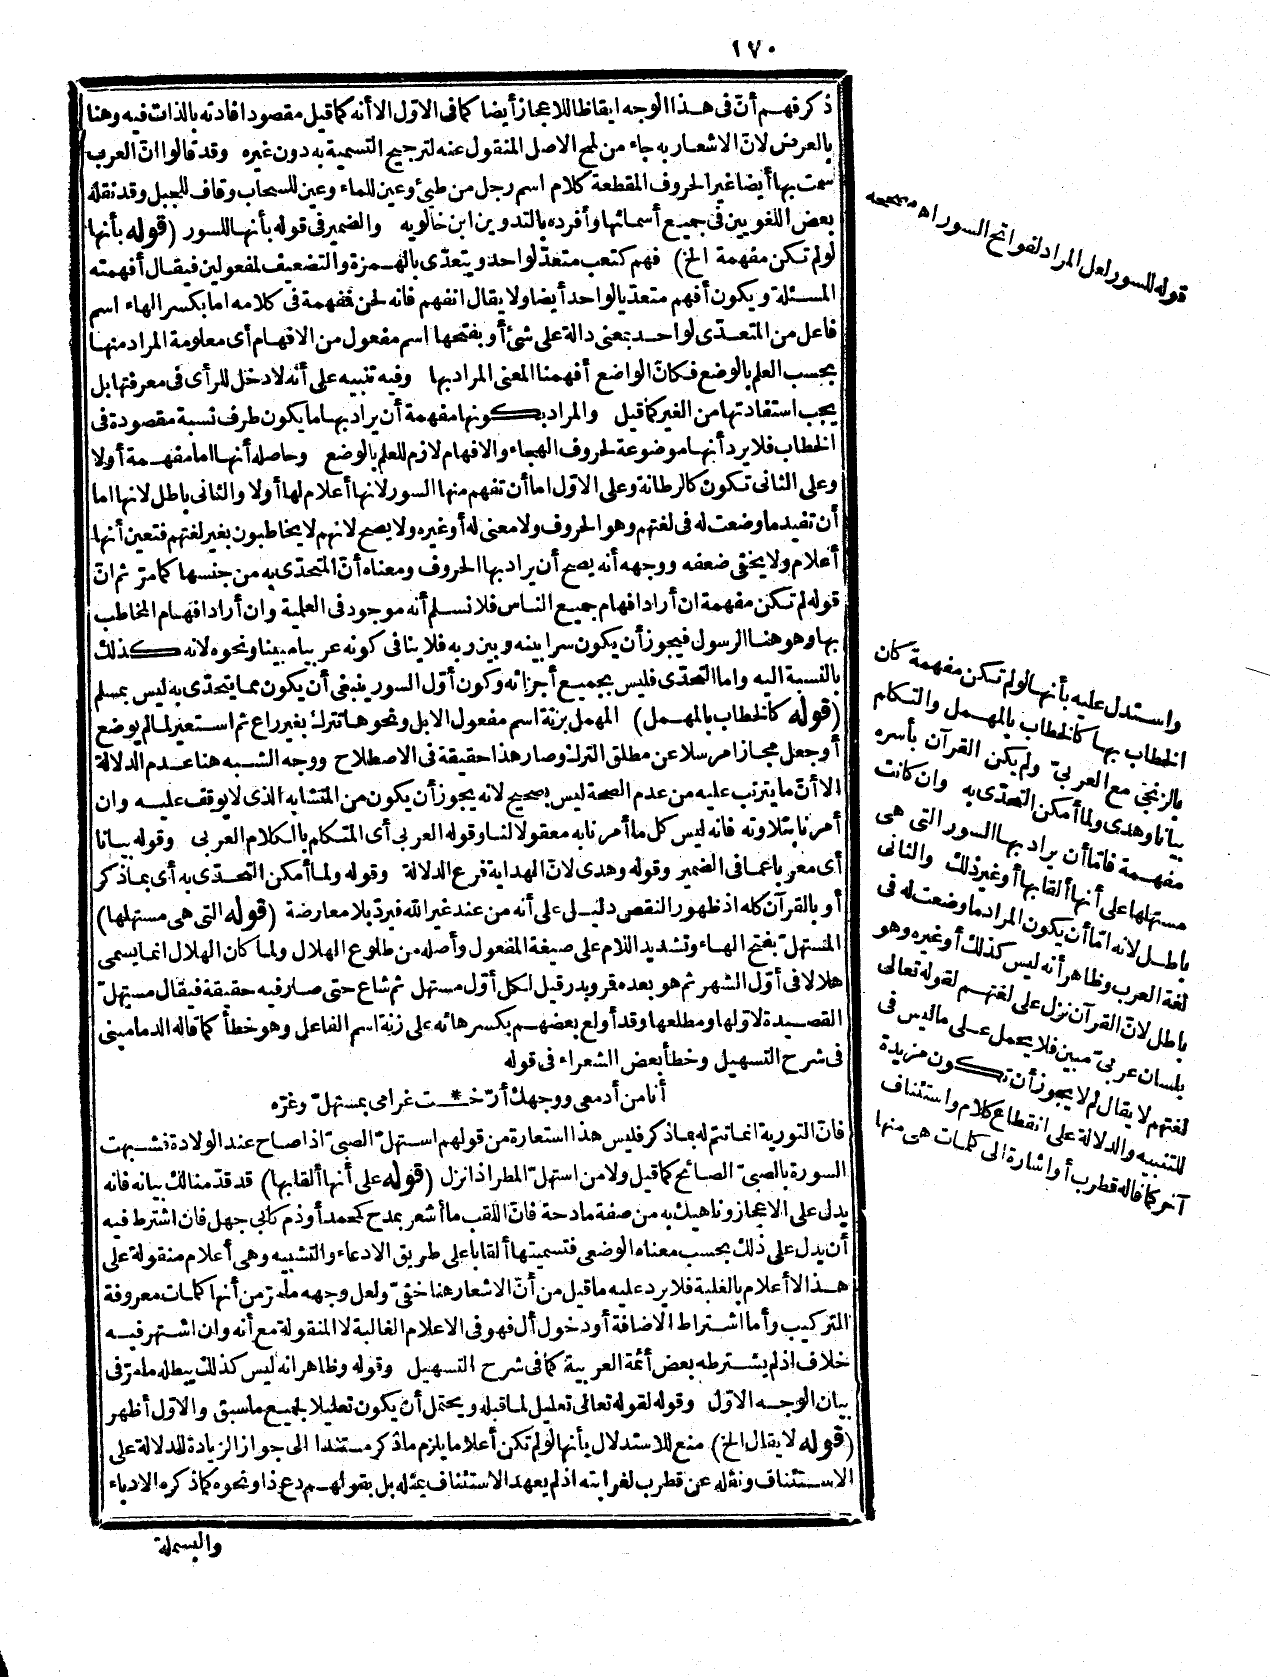 ١٧٠
ذكر فهم أنّ فى هذا الوجه ايقاظا للاعجاز أيضا كما فى الاوّل الا أنه كما قيل مقصود افادته بالذات فيه وهنا
بالعرض لانّ الاشعار به جاء من لمح الاصل المنقول عنه لترجيح التسمية به دون غيره وقد قالوا انّ العرب
سمت بها أيضا غير الحروف المقطعة كلام اسم رجل من طيئ وعين للماء وعين للسحاب وقاف للجبل وقد نقله
بعض اللغويين فى جميع أسمائها وأفرده بالتدوين ابن خالويه والضمير فى قوله بأنها للسور (قوله بأنها
لو لم تكن مفهمة الخ) فهم كتعب متعدّ لواحد ويتعدّى بالهمزة والتضعيف لمفعولين فيقال أفهمته
المسئلة ويكون أفهم متعديا لواحد أيضا ولا يقال انفهم فانه لحن فمفهمة فى كلامه اما بكسر الهاء اسم
فاعل من المتعدّى لواحد بمعنى دالة على شئ أو بفتحها اسم مفعول من الافهام أى معلومة المراد منها
بحسب العلم بالوضع فكانّ الواضع أفهمنا المعنى المراد بها وفيه تنبيه على أنه لا دخل للرأى فى معرفتها بل
يجب استفادتها من الغير كما قيل والمراد بكونها مفهمة أن يراد بها ما يكون طرف نسبة مقصودة فى
الخطاب فلا يرد أنها موضوعة لحروف الهجاء والافهام لازم للعلم بالوضع وحاصله أنها اما مفهمة أو لا
وعلى الثانى تكون كالرطانة وعلى الاوّل اما أن تفهم منها السور لانها أعلام لها أو لا والثانى باطل لانها اما
أن تفيد ما وضعت له فى لغتهم وهو الحروف ولا معنى له أو غيره ولا يصح لانهم لا يخاطبون بغير لغتهم فتعين أنها
أعلام ولا يخفى ضعفه ووجهه أنه يصح أن يراد بها الحروف ومعناه أنّ المتحدّى به من جنسها كما مرّ ثم انّ
قوله لم تكن مفهمة ان أراد افهام جميع الناس فلا نسلم أنه موجود فى العلمية وان أراد افهام المخاطب
بها وهو هنا الرسول فيجوز أن يكون سرا بينه وبين ربه فلا ينافى كونه عربيا مبينا ونحوه لانه كذلك
بالنسبة اليه واما التحدّى فليس بجميع أجزائه وكون أوّل السور ينبغى أن يكون مما يتحدّى به ليس بمسلم
(قوله كالخطاب بالمهمل) المهمل بزنة اسم مفعول الابل ونحوها تترك بغير راع ثم استعير لما لم يوضع
أو جعل مجازا مرسلا عن مطلق الترك وصار هذا حقيقة فى الاصطلاح ووجه الشبه هنا عدم الدلالة
الا أنّ ما يترتب عليه من عدم الصحة ليس بصحيح لانه يجوز أن يكون من المتشابه الذى لا يوقف عليه وان
أمرنا بتلاوته فانه ليس كل ما أمرنا به معقولا لنا وقوله العربى أى المتكلم بالكلام العربى وقوله بيانا
أى معربا عما فى الضمير وقوله وهدى لانّ الهداية فرع الدلالة وقوله ولما أمكن التحدّى به أى بما ذكر
أو بالقرآن كله اذ ظهور النقص دليل على أنه من عند غير الله فيردّ بلا معارضة (قوله التى هى مستهلها)
المستهلّ بفتح الهاء وتشديد اللام على صيغة المفعول وأصله من طلوع الهلال ولما كان الهلال انما يسمى
هلالا فى أوّل الشهر ثم هو بعده قمر وبدر قيل لكل أوّل مستهل ثم شاع حتى صار فيه حقيقة فيقال مستهلّ
القصيدة لاوّلها ومطلعها وقد أولع بعضهم بكسر هائه على زنة اسم الفاعل وهو خطأ كما قاله الدمامينى
فى شرح التسهيل وخطأ بعض الشعراء فى قوله
أنا من أدمعى ووجهك أرّخـ * ـت غرامى بمستهلّ وغرّه
فانّ التورية انما تتم له بما ذكر فليس هذا استعارة من قولهم استهلّ الصبىّ اذا صاح عند الولادة فشبهت
السورة بالصبىّ الصائح كما قيل ولا من استهلّ المطر اذا نزل (قوله على أنها ألقابها) قد قدّمنا لك بيانه فانه
يدل على الاعجاز وناهيك به من صفة مادحة فانّ اللقب ما أشعر بمدح كمحمد أو ذم كأبى جهل فان اشترط فيه
أن يدل على ذلك بحسب معناه الوضعى فتسميتها ألقابا على طريق الادعاء والتشبيه وهى أعلام منقولة على
هذا لا أعلام بالغلبة فلا يرد عليه ما قيل من أنّ الاشعار هنا خفىّ ولعل وجهه ما مرّ من أنها كلمات معروفة
التركيب وأما اشتراط الاضافة أو دخول أل فهو فى الاعلام الغالبة لا المنقولة مع أنه وان اشتهر فيه
خلاف اذ لم يشترطه بعض أئمة العربية كما فى شرح التسهيل وقوله وظاهر انه ليس كذلك يبطله ما مرّ فى
بيان الوجه الاوّل وقوله لقوله تعالى تعليل لما قبله ويحتمل أن يكون تعليلا لجميع ما سبق والاوّل أظهر
(قوله لا يقال الخ) منع للاستدلال بأنها لو لم تكن أعلاما يلزم ما ذكر مستندا الى جواز الزيادة للدلالة على
الاستئناف ونقله عن قطرب لغرابته اذ لم يعهد الاستئناف بمثله بل بقولهم دع ذا ونحوه كما ذكره الادباء
والبسملة
قوله للسور لعل المراد لفواتح السور اه مصححه
واستدل عليه بأنها لو لم تكن مفهمة كان
الخطاب بها كالخطاب بالمهمل والتكلم
بالزنجى مع العربىّ ولم يكن القرآن بأسره
بيانا وهدى ولما أمكن التحدّى به وان كانت
مفهمة فامّا أن يراد بها السور التى هى
مستهلها على أنها ألقابها أو غير ذلك والثانى
باطل لانه امّا أن يكون المراد ما وضعت له فى
لغة العرب وظاهر أنه ليس كذلك أو غيره وهو
باطل لانّ القرآن نزل على لغتهم لقوله تعالى
بلسان عربىّ مبين فلا يحمل على ما ليس فى
لغتهم لا يقال لم لا يجوز أن تكون مزيدة
للتنبيه والدلالة على انقطاع كلام واستئناف
آخر كما قاله قطرب أو اشارة الى كلمات هى منها